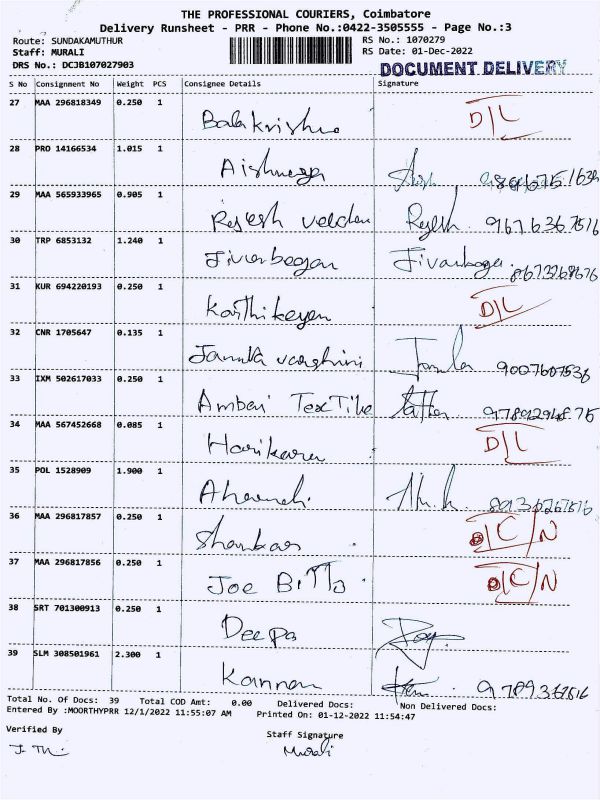 THE PROFESSIONAL COURIERS, Coimbatore
Delivery Runsheet - PRR - Phone No.:0422-3505555 - Page No.:3
Route: SUNDAKAMUTHUR RS No.: 1070279
Staff: MURALI RS Date: 01-Dec-2022
DRS No.: DCJB107027903 DOCUMENT DELIVERY
S No Consignment No Weight PCS Consignee Details Signature
27 MAA 296818349 0.250 1
Balakrishna D/L
28 PRO 14166534 1.015 1
29 MAA 565933965 0.905 1
Rajesh Rajesh
30 TRP 6853132 1.240 1
31 KUR 694220193 0.250 1
Karthikeyan D/L
32 CNR 1705647 0.135 1
9007607538
33 IXM 502617033 0.250 1
34 MAA 567452668 0.085 1
D/L
35 POL 1528909 1.900 1
36 MAA 296817857 0.250 1
Shankar C/N
37 MAA 296817856 0.250 1
Joe C/N
38 SRT 701300913 0.250 1
Deepa
39 SLM 308501961 2.300 1
Kannan
Total No. Of Docs: 39 Total COD Amt: 0.00 Delivered Docs: Non Delivered Docs:
Entered By :MOORTHYPRR 12/1/2022 11:55:07 AM Printed On: 01-12-2022 11:54:47
Verified By Staff Signature
Murali